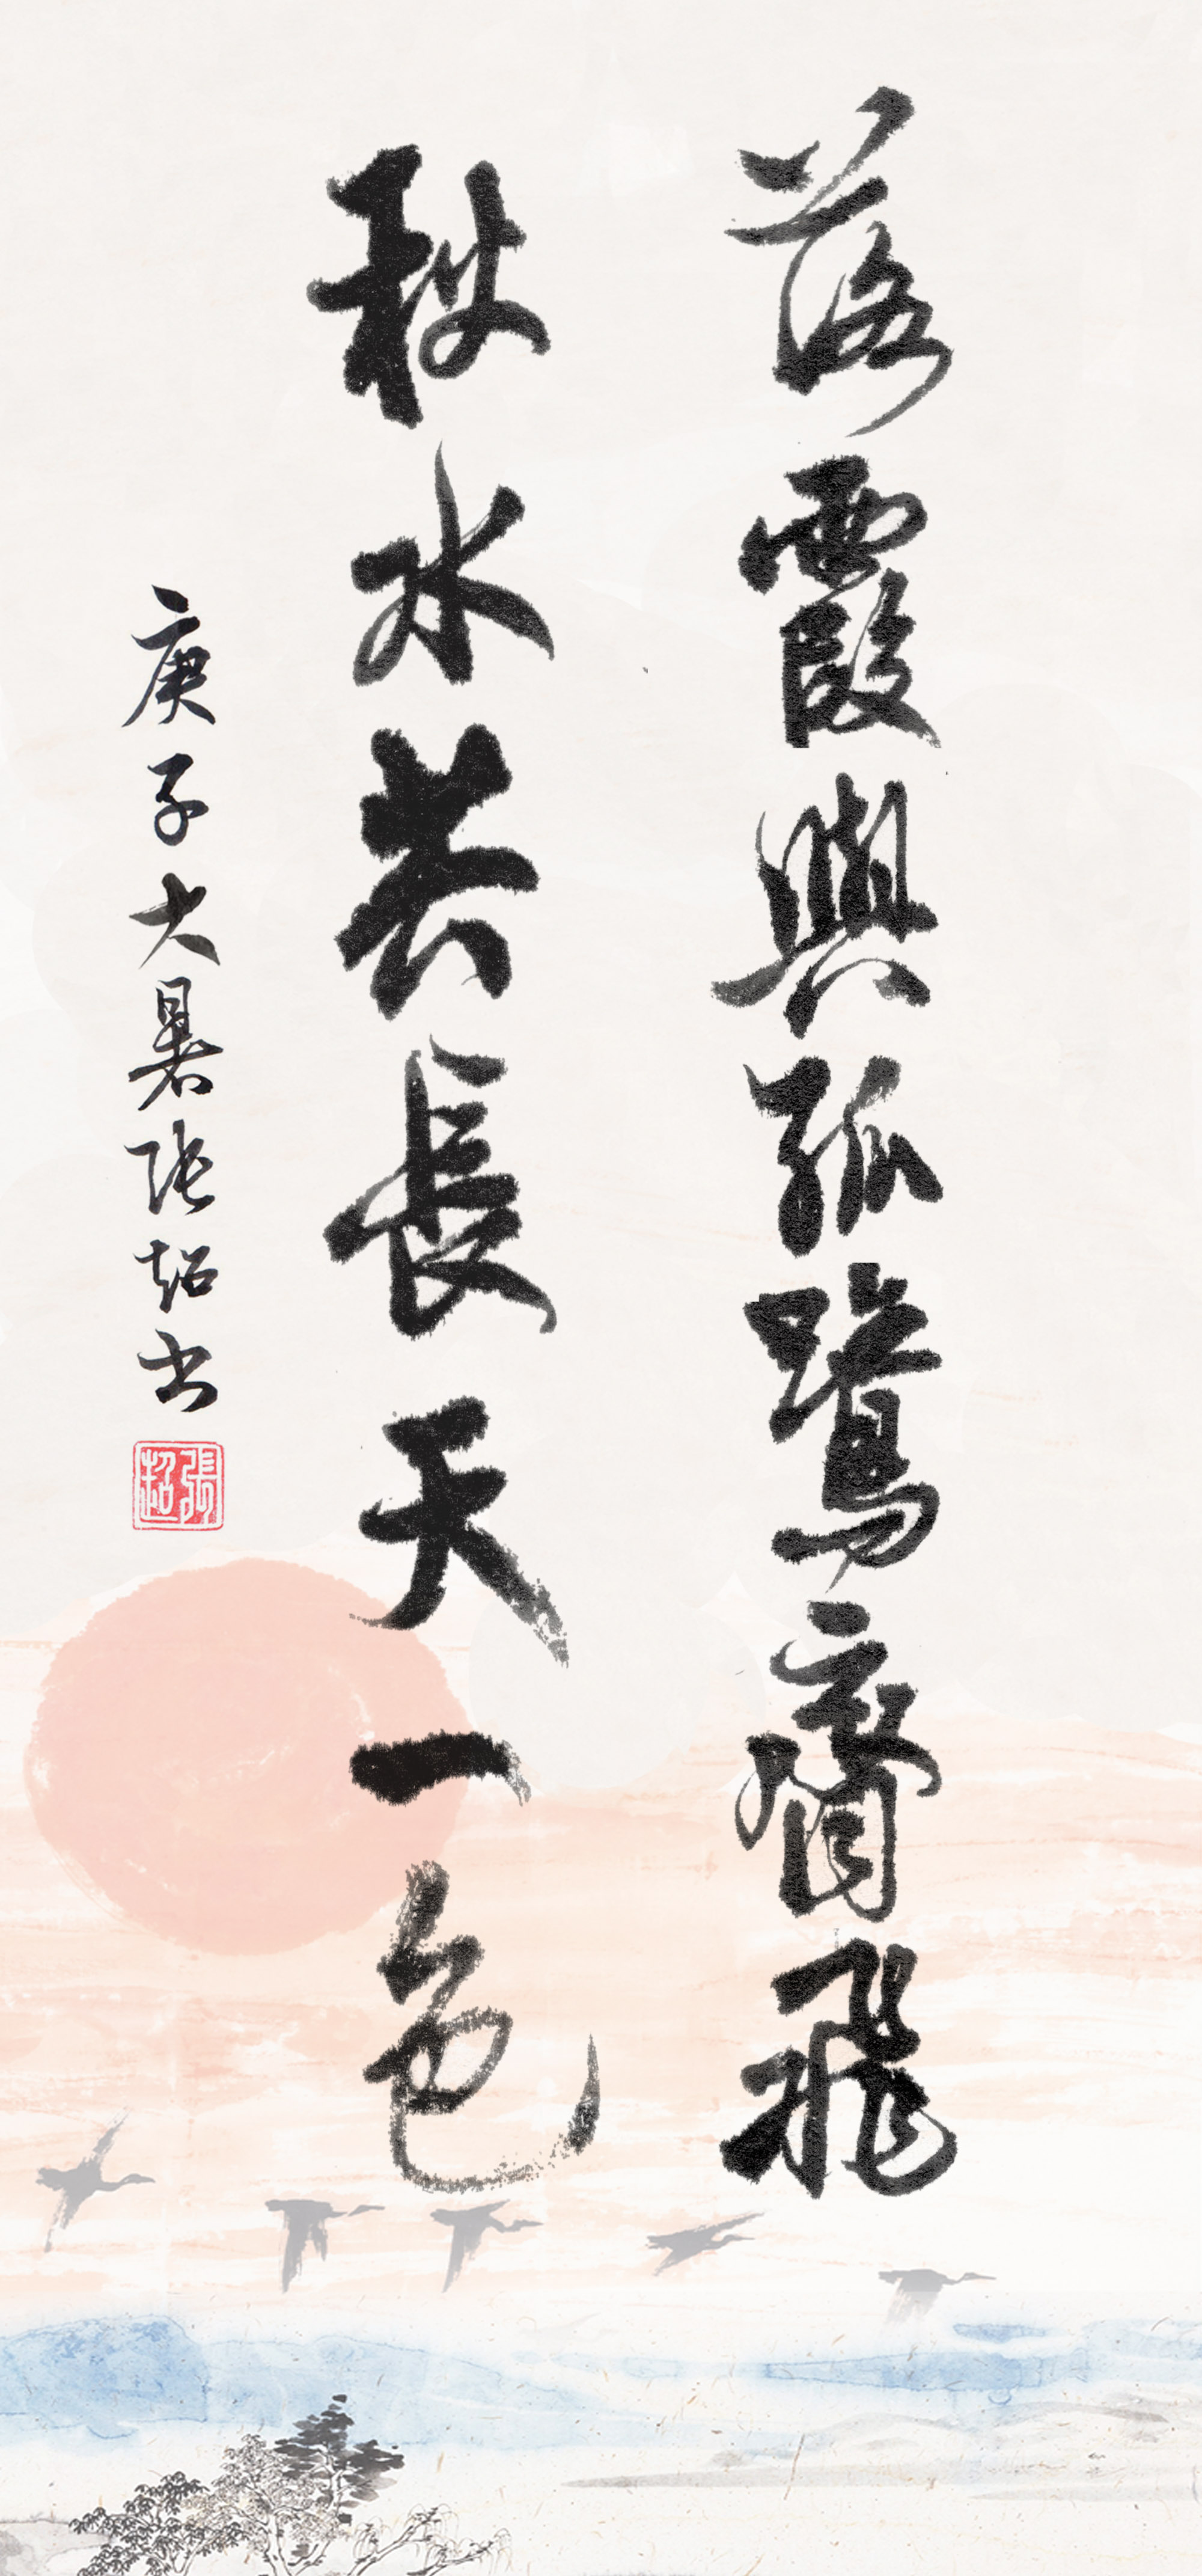 落霞與孤鶩齊飛
秋水共長天一色
庚子大暑張超書
張超